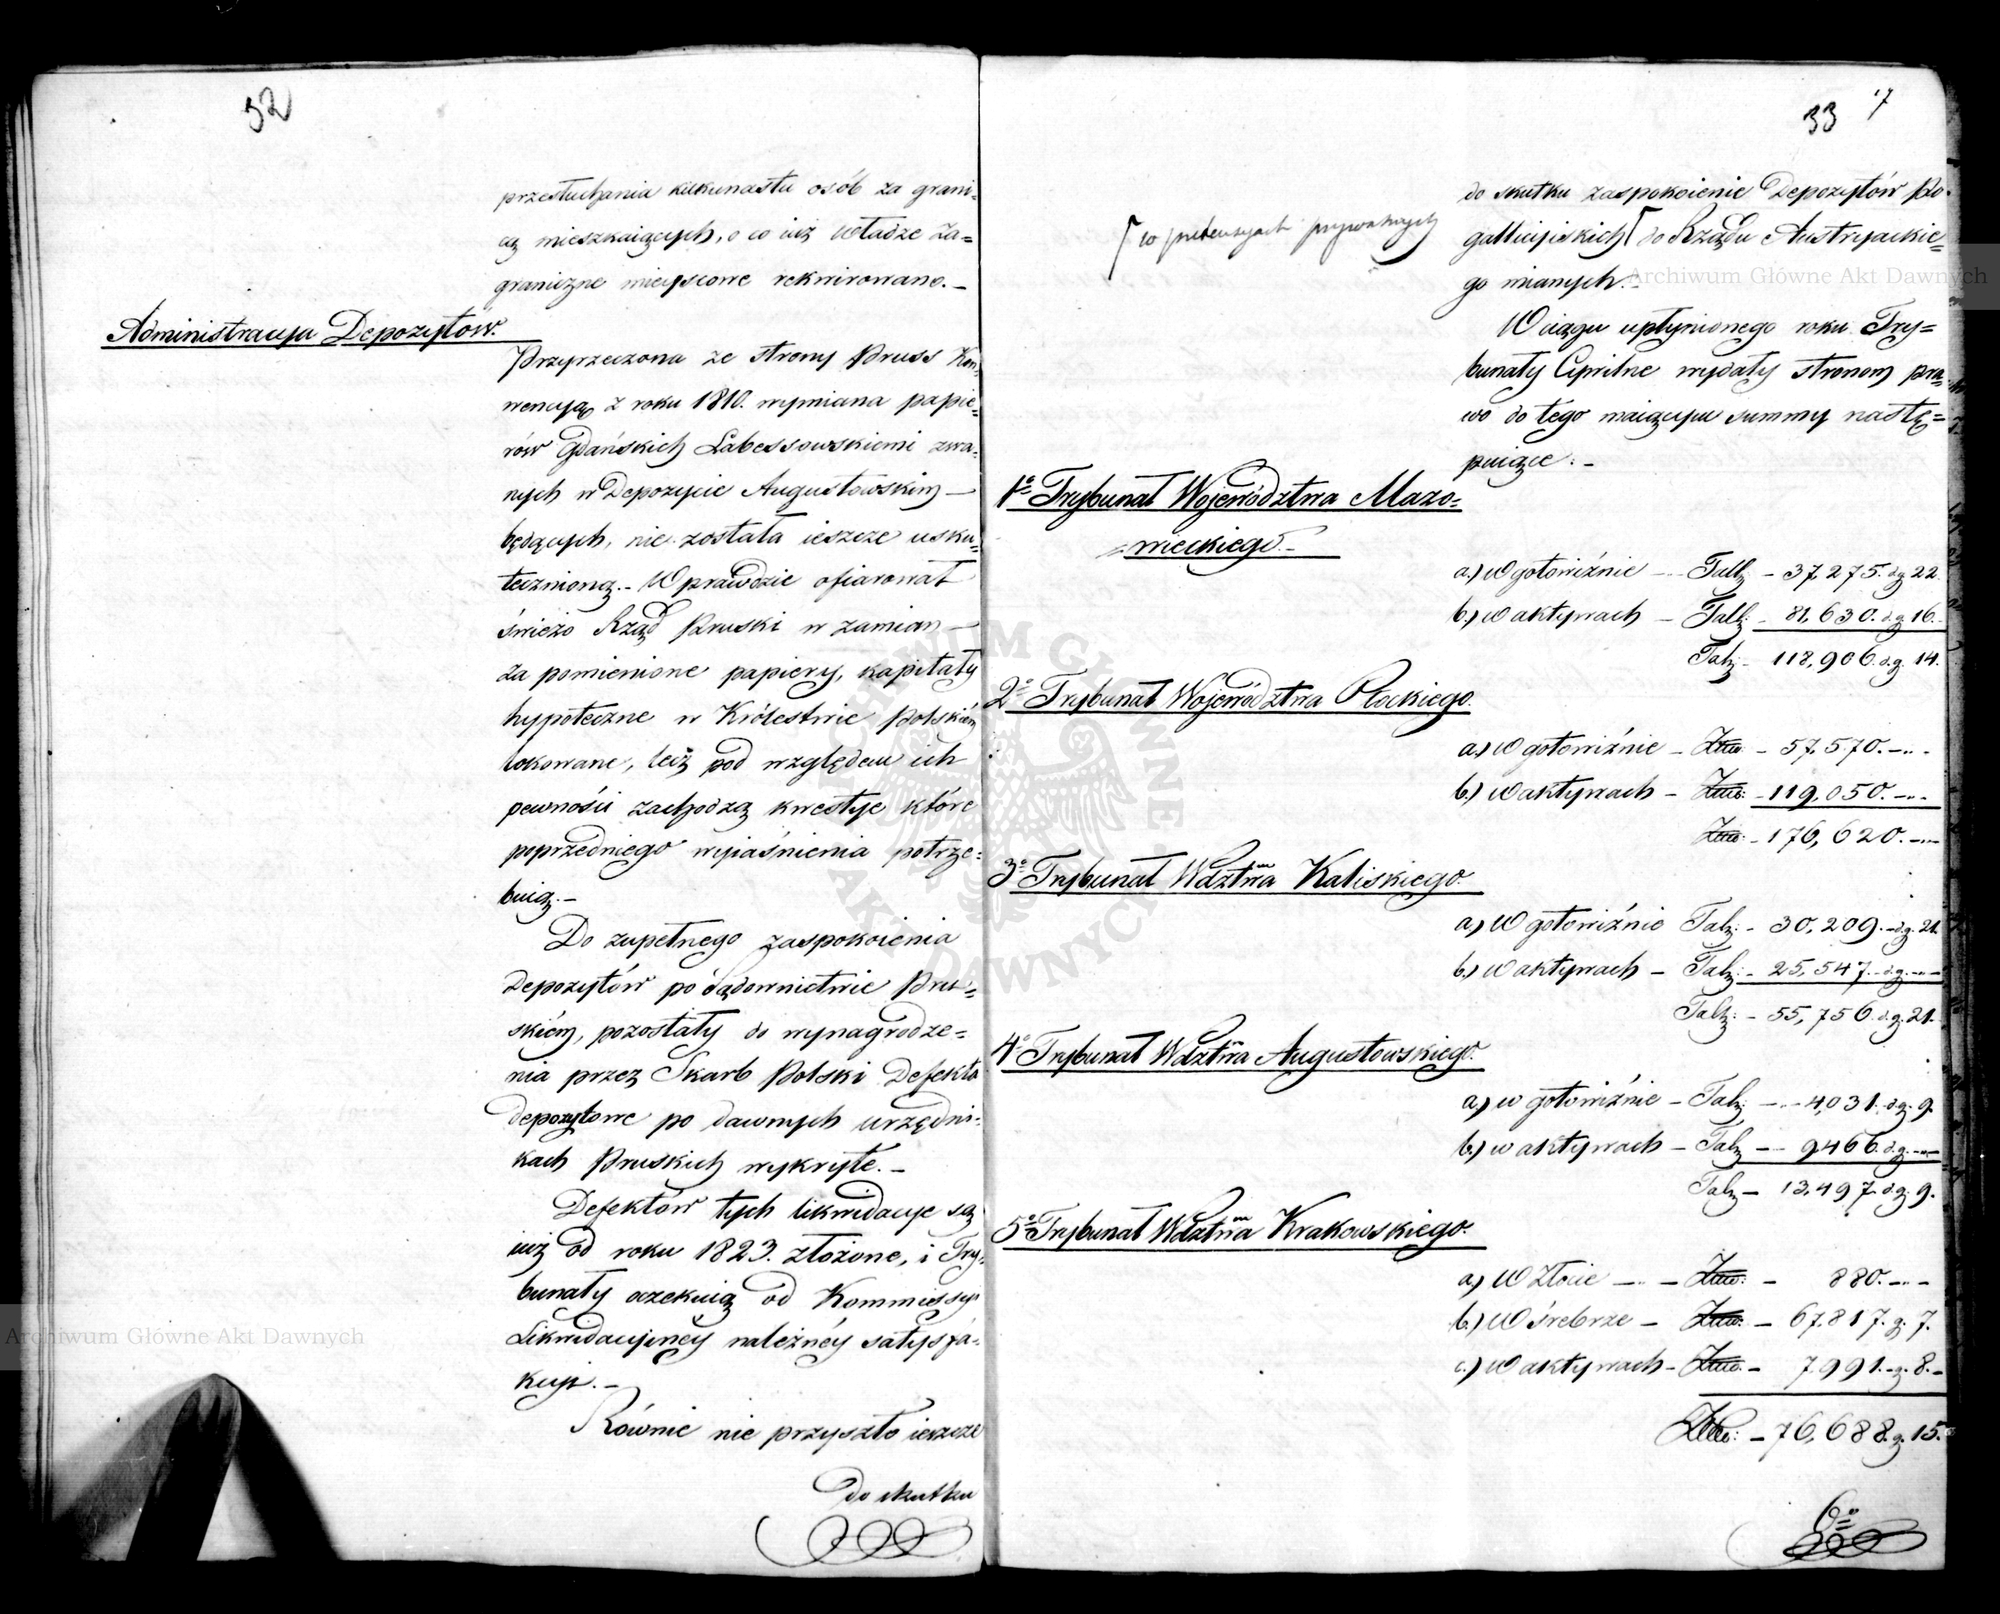 32
przesłuchania kilkunastu osób za grani-
cą mieszkaiących, o co iuż Władze Za=
graniczne mieyscowe rekwirowano. –
Administracya Depozytow.
Przyrzeczona ze strony Pruss Kon-
wencyą z roku 1810. wymiana papie=
rów Gdańskich Labessowskiemi zwa-
nych w Depozycie Augustowskim –
będących, nie została ieszcze usku-
tecznioną. – Wprawdzie ofiarował
świeżo Rząd Pruski w zamian –
za pomienione papiery, kapitały
hypoteczne w Królestwie Polskiem
lokowane, lecz pod względem ich
pewności zachodzą kwestye które
poprzedniego wyiaśnienia potrze-
buią. –
Do zupełnego zaspokoienia
Depozytów po Sądownictwie Pru-
skiém, pozostały do wynagrodze=
nia przez Skarb Polski Defekta
depozytowe po dawnych urzędni-
kach Pruskich wykryte. –
Defektów tych likwidacye są
iuż od roku 1823. złożone, i Try-
bunały oczekuią od Kommissyi
Likwidacyinéy należnéy satysfa-
kcyi. –
Równie nie przyszło ieszcze
do skutku
33 7
do skutku zaspokoienie Depozytów Po-
gallicyiskich ⌈ do Rządu Austryackie=
go mianych. –
⌈ w pretensyach prywatnych
W ciągu upłynionego roku Try=
bunały Cywilne wydały stronom pra-
wo do tego maiącym summy nastę=
puiące: –
1º Trybunał Województwa Mazo=
wieckiego. –
a.) W gotowiźnie – Tall – 37,275. dg 22.
b.) w aktywach – Tall: – 81,630. dg 16.
Tal: – 118,906. dg. 14.
2º Trybunał Województwa Płockiego.
a.) W gotowiźnie – Złłw: – 57,570. –
b.) w aktywach – Złłw: – 119,050. –
Złłw: – 176,620. –
3º Trybunał Wdztwa Kaliskiego.
a.) W gotowiźnie Tal: – 30,209. – dg. 21.
b.) w aktywach – Tal: – 25,547. – dg. –
Tal: – 55,756. dg. 21.
4º Trybunał Wdztwa Augustowskiego.
a.) w gotowiźnie – Tal: – 4,031. dg. 9.
b.) w aktywach – Tal: – 9466. dg. –
Tal: – 13,497. dg. 9.
5º Trybunał Wdztwa Krakowskiego.
a.) W Złocie – – Złłw: – 880. –
b.) W Śrebrze – Złłw: – 67,817. g. 7.
c.) W aktywach – Złłw: – 7,991. – g. 8. –
Złłw: – 76,688. g. 15.
6º
Archiwum Główne Akt Dawnych
Archiwum Główne Akt Dawnych
ARCHIWUM GŁÓWNE AKT DAWNYCH